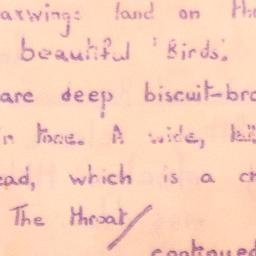 arwings land on the
beautiful 'Birds'.
are deep biscuit-bro
in tone. A wide,
ead, which is a cr
The throat/
continued